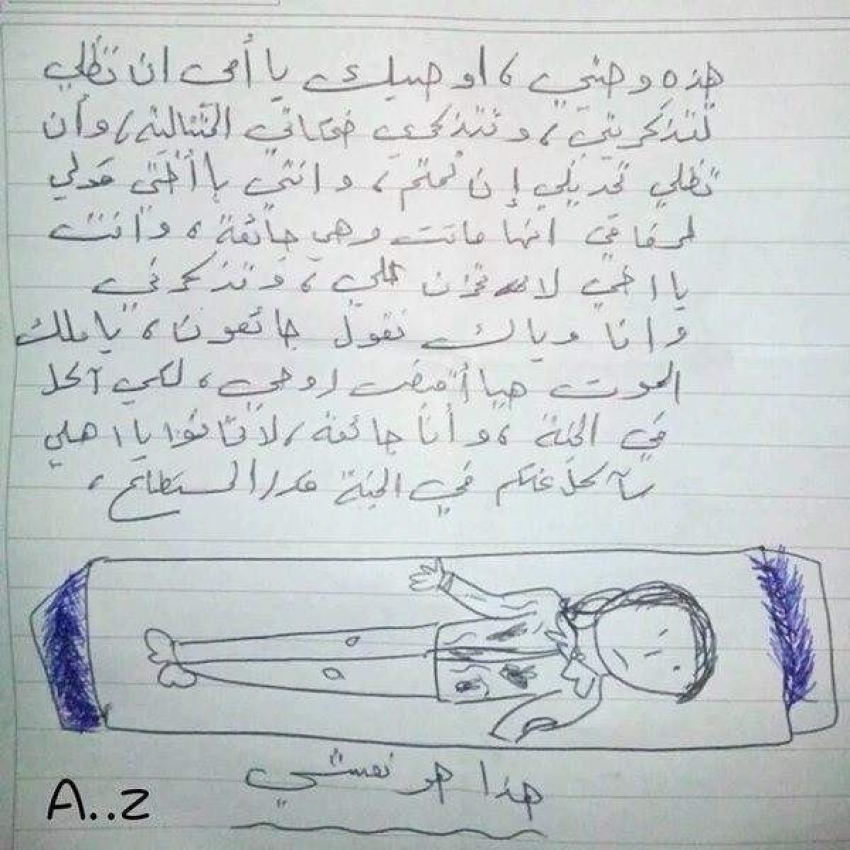 هذه وصيتي ، اوصيك يا أمي ان تظلي
تتذكريني ، وتتذكري ضحكاتي المتتالية ، وأن
تظلي تحديثي إن نمتم ، وانتي يا أختي قولي
لرفاقي انها ماتت وهي جائعة ، وأنت
يا اخي لا تحزن علي ، وتذكرني
وانا وياك نقول جائعون ، يا ملك
الموت هيا أقبض روحي ، لكي آكل
في الجنة ، وأنا جائعة ، لا تخافوا يا اهلي
سآكل عنكم في الجنة قدر المستطاع ،
هذا هو نعشي
A..z